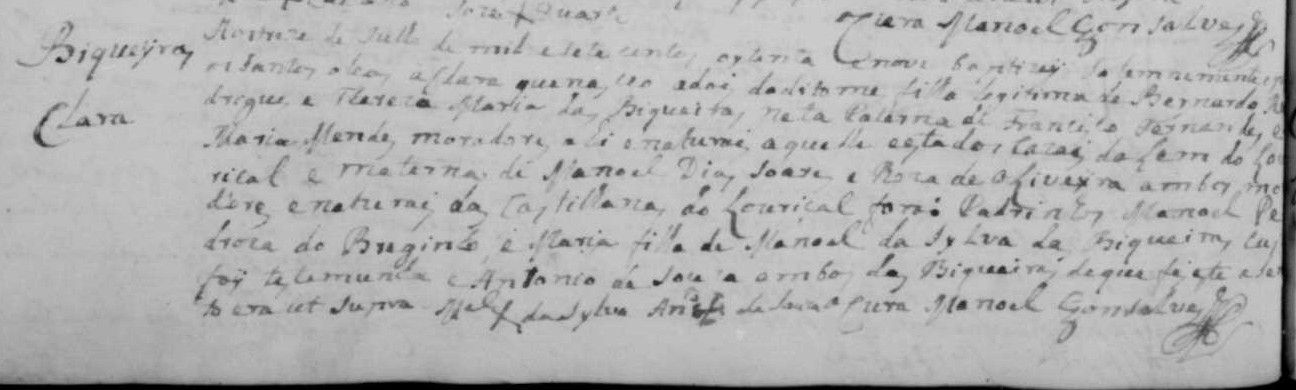 Joze Duarte
Cura Manoel Gonsalvez
Biqueyras
Clara
de Julho de mil e sete centos oytenta e nove baptizey solemnemente
os santos oleos a Clara que nasceo aos do dito mes filha legitima de Bernardo Ro
drigues e Thereza Maria das Biqueiras neta Paterna de Francisco Fernandes e
Maria Mendes moradores e naturais aquelle e esta dos Cazais do Lou
rical e materna de Manoel Dias Soares e Roza de Oliveyra ambos mo
dores e naturais das Castilhanas do Lourical forão Padrinhos Manoel Pe
droza do e Maria filha de Manoel da Sylva da Biqueiras
foy testemunha e Antonio de Souza ambos das Biqueiras de que fiz este
to era ut supra Mel da Sylva Anto de Souza Cura Manoel Gonsalvez